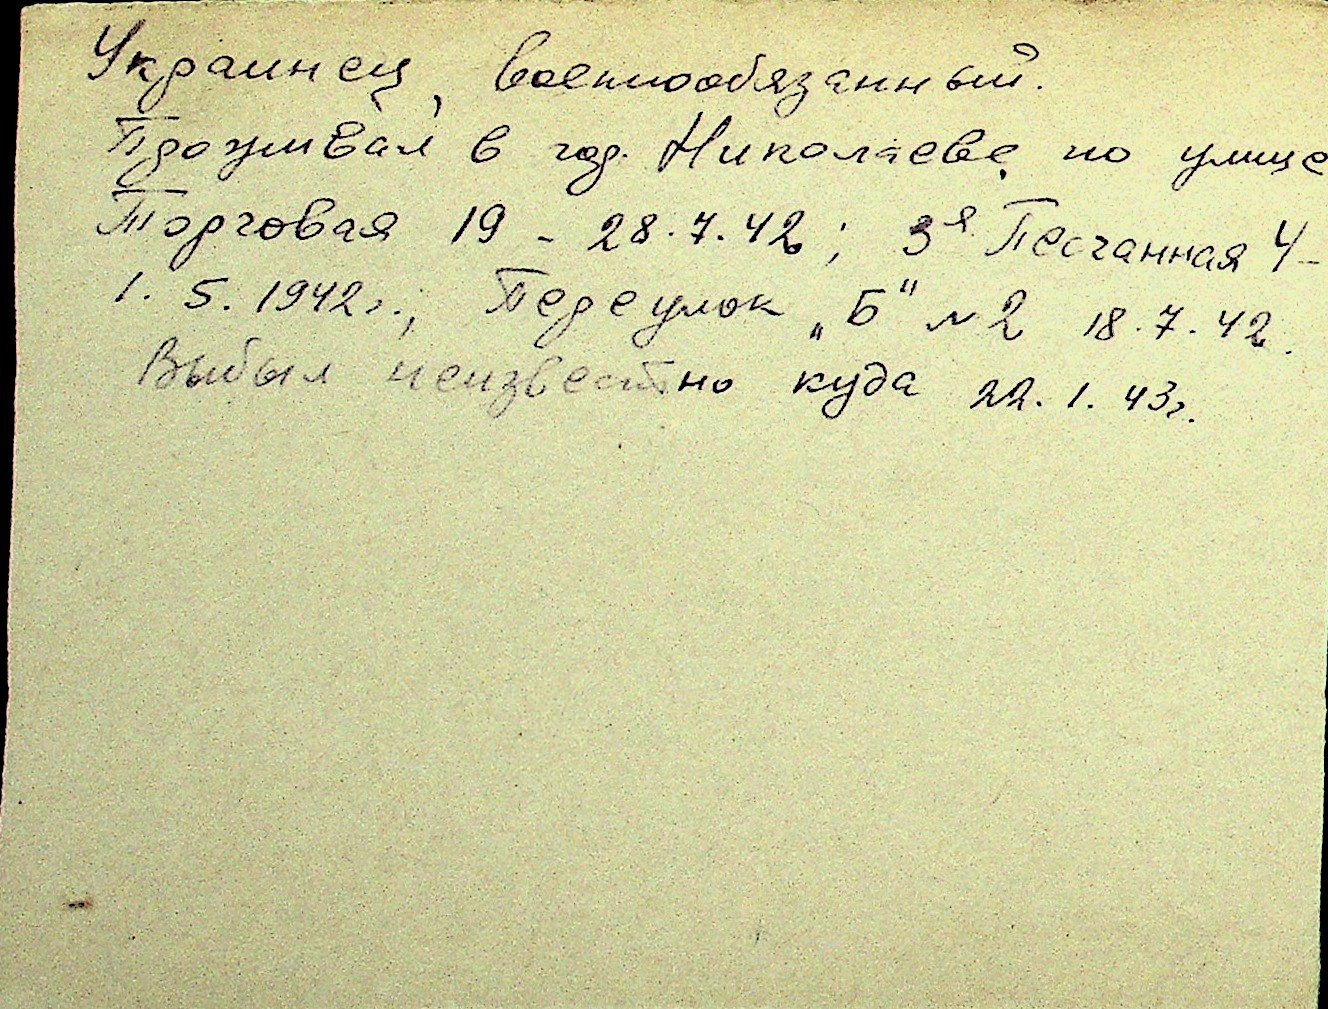 Украинец, военнообязанный.
Проживал в гор. Николаеве, по улице
Торговая 19 - 28.7.42; 3я Песчанная 4 -
1. 5. 1942г.; Переулок „Б" № 2 18.7.42.
Выбыл неизвестно куда 22.1.43г.